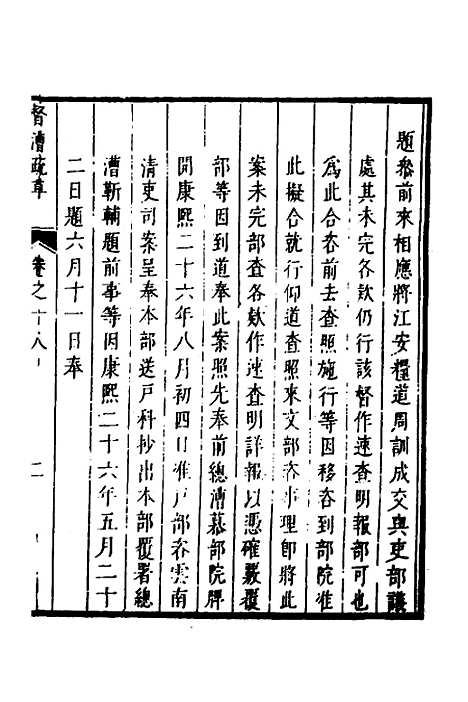 題叅前來相應將江安糧道周訓成交與吏部議
處其未完各欵仍行該督作速查明報部可也
爲此合咨前去查照施行等因移咨到部院准
此擬合就行仰道查照來文部咨事理即將此
案未完部查各欵作速查明詳報以憑確覈覆
部等因到道奉此案照先奉前總漕慕部院牌
開康熙二十六年八月初四日准戸部咨雲南
清吏司案呈奉本部送戸科抄出本部覆署總
漕靳輔題前事等因康熙二十六年五月二十
二日題六月十一日奉
督漕疏草
卷之十八
二